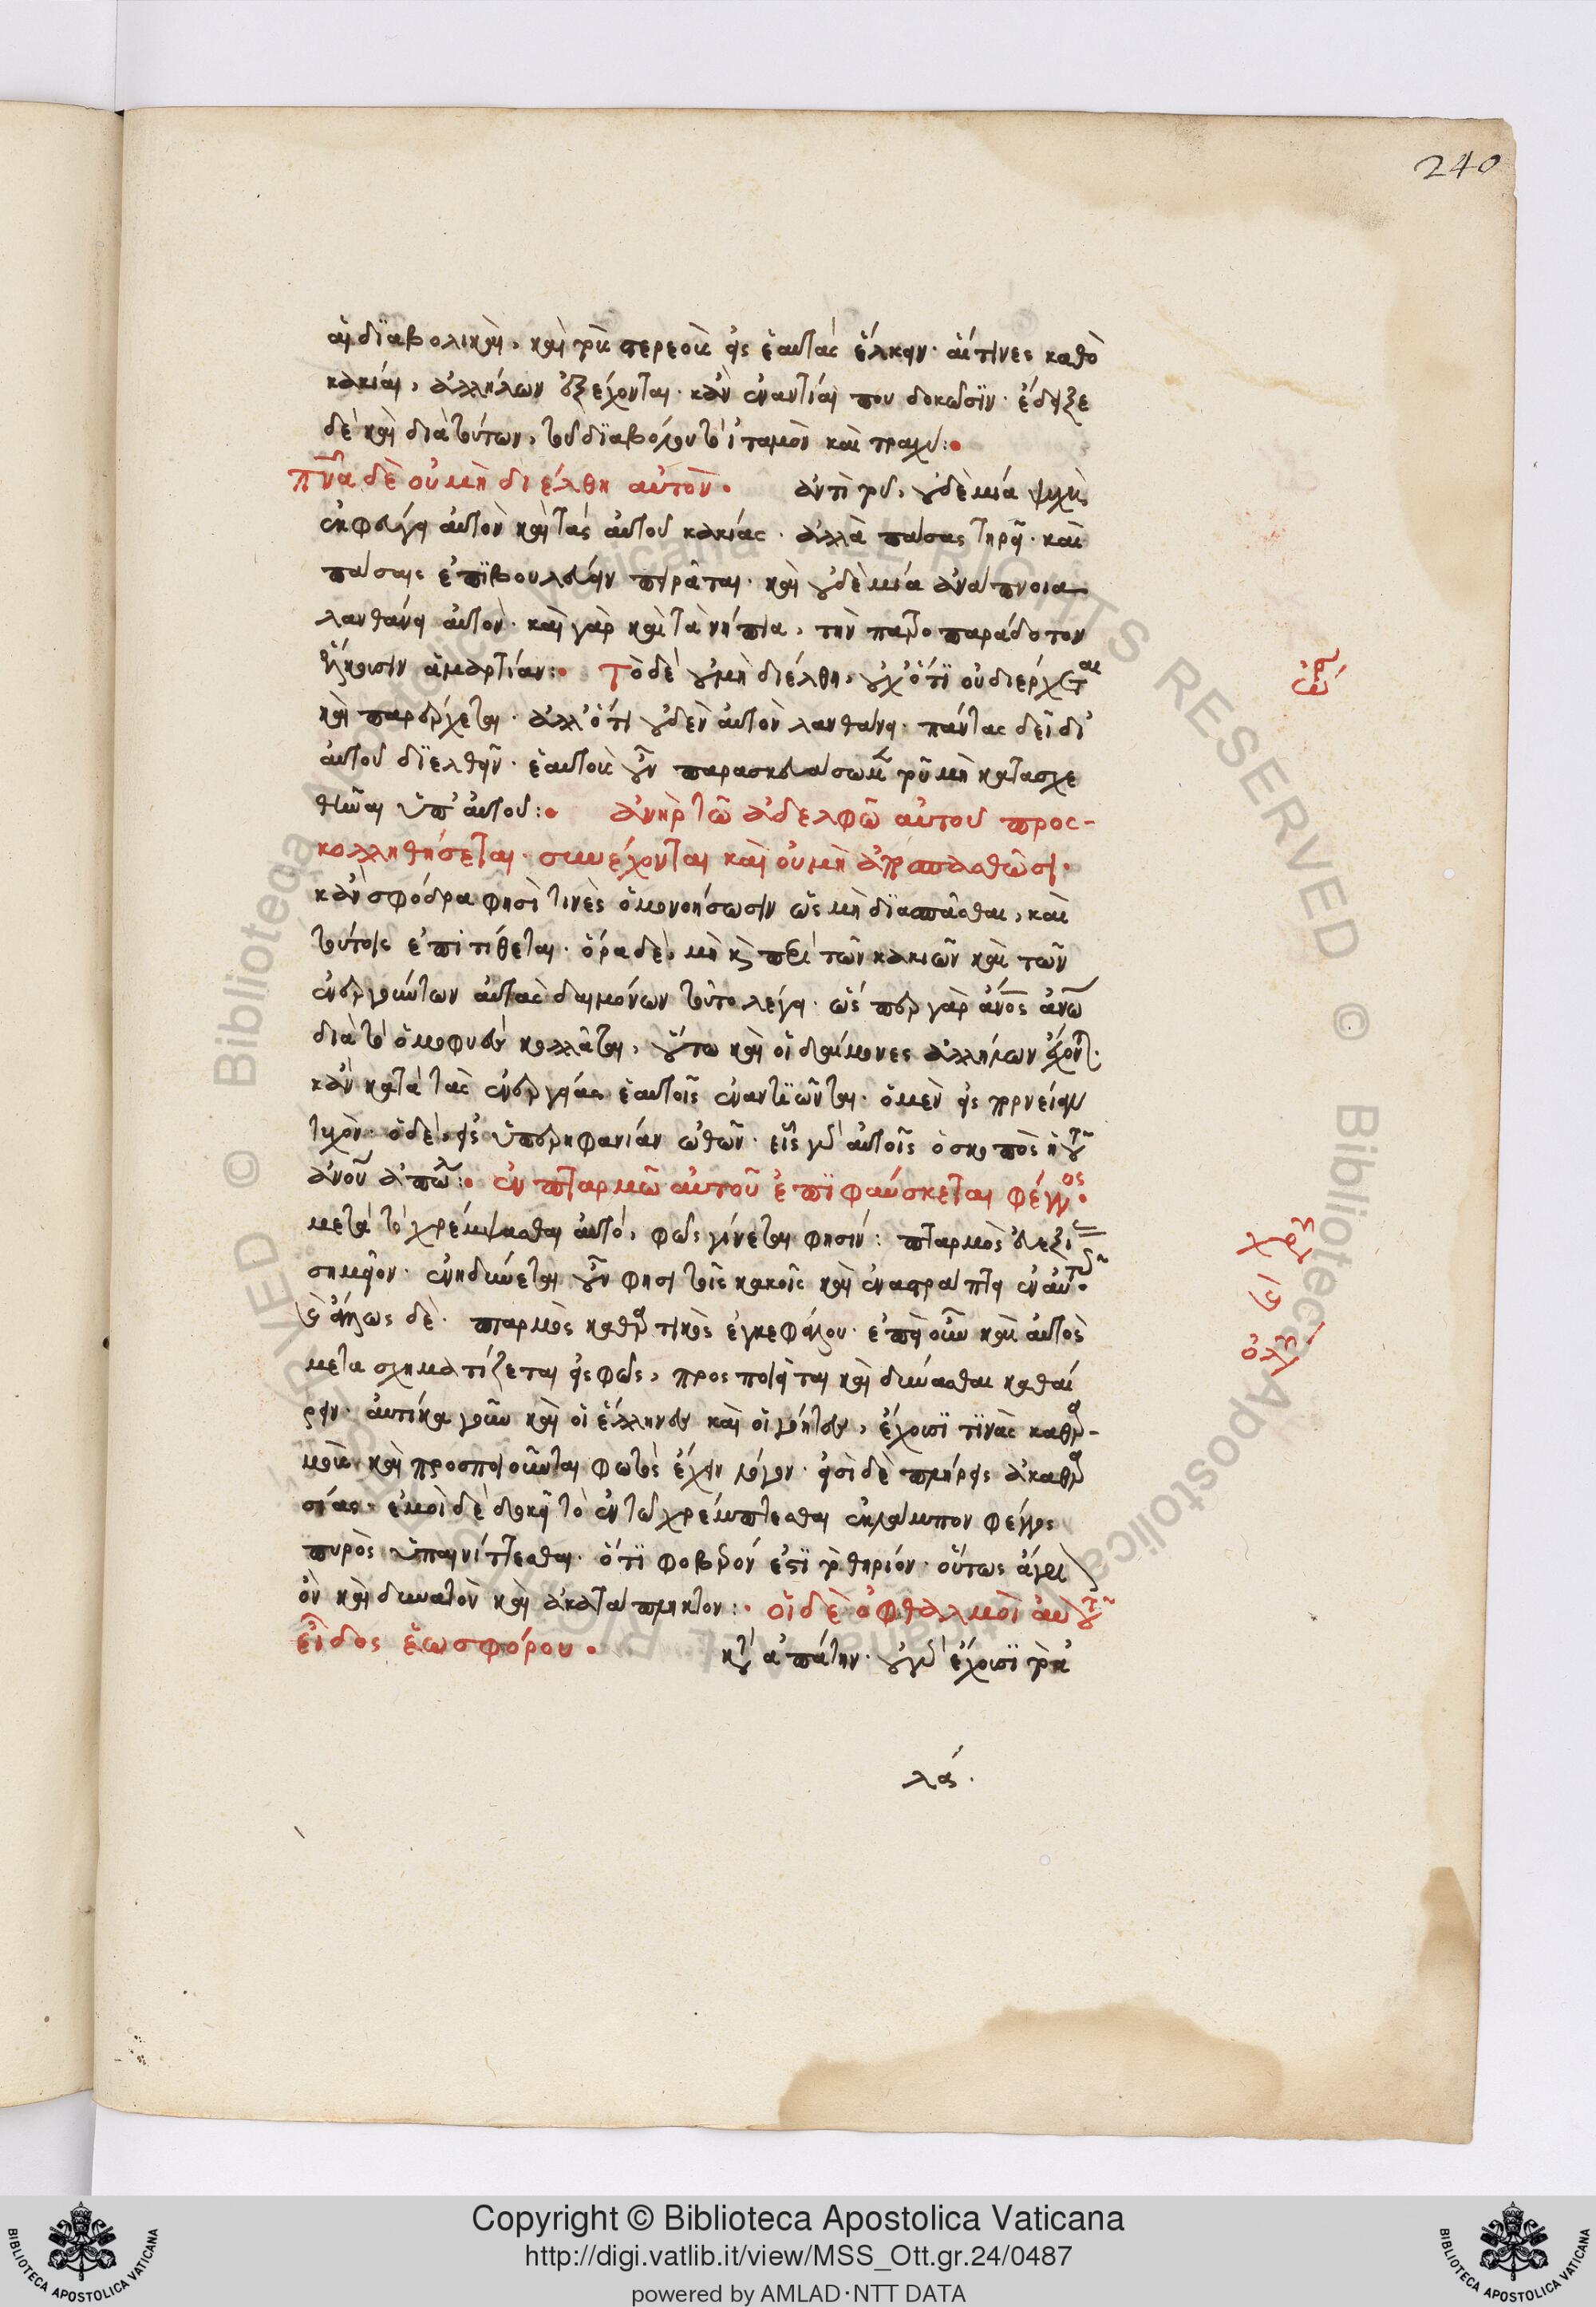 240
αἱ διαβολικαὶ, καὶ τοὺς στερεοὺς εἰς ἑαυτὰς ἕλκειν· αἵτινες καθὸ
κακίαι, ἀλλήλων ἐξέχονται· κἂν ἐναντίαι που δοκῶσϊν· ἔδειξε
δὲ καὶ διὰ τούτων, τοῦ διαβόλου τὸ ἰταμὸν καὶ τραχύ:
πνα δὲ οὐ μὴ διέλθη αὐτόν· ἀντὶ τοῦ, οὐδὲ μία ψυχὴ
ἐκφεύγει αὐτὸν καὶ τὰς αὐτοῦ κακίας· ἀλλὰ πάσας τηρεῖ· καὶ
πάσαις ἐπϊβουλεύειν πειρᾶται· καὶ οὐδὲ μία ἀναπνοια
λανθάνει αὐτόν· καὶ γὰρ καὶ τὰ νήπια, τὴν πατροπαράδοτον
ἕλκουσιν ἁμαρτίαν: Τὸ δὲ οὐ μὴ διέλθη, οὐχ ὅτϊ οὐ διέρχεται
καὶ παρέρχεται· ἀλλ' ὅτι οὐδὲν αὐτὸν λανθάνει· πάντας δεῖ δι'
αὐτοῦ διελθεῖν· ἑαυτοὺς οὖν παρασκευάσωμεν τοῦ μὴ κατασχε
θῆναι ὑπ' αὐτοῦ: ἀνὴρ τῶ ἀδελφῶ αὐτοῦ προσ-
κολληθήσεται· συνέχονται καὶ οὐ μὴ ἀποσπασθῶσι·
κἂν σφόδρα φησὶ τινὲς ὁμονοήσωσιν ὡς μὴ διασπᾶσθαι, καὶ
τούτοις ἐπιτίθεται· ὅρα δὲ, μὴ καὶ περὶ τῶν κακιῶν καὶ τῶν
ἐνεργούντων αὐτὰς δαιμόνων τοῦτο λέγει· ὥσπερ γὰρ ἄνος ἀνω
διὰ τὸ ὁμοφυὲς κολλᾶται, οὕτω καὶ οἱ δαίμονες ἀλλήλων ἔχοντ·
κἂν κατὰ τὰς ἐνεργείας ἑαυτοῖς ἐναντιῶνται· ὁ μὲν εἰς πορνείαν
τυχόν· ὁ δὲ, εἰς ὑπερηφανίαν ὠθῶν· εἷς γὰρ αὐτοῖς ὁ σκοπὸς ἡ τοῦ
ἀνου ἀπώλ: ἐν πταρμῶ αὐτοῦ ἐπϊφαύσκεται φέγγος·
μετὰ τὸ χρέμψασθαι αὐτό, φῶς γίνεται φησίν: πταρμὸς δεξι
σημεῖον· ἐνηδύνεται οὖν φησι τοῖς κακοῖς καὶ ἐναστράπτει ἐν αὐτῶ·
ἄλλως δὲ· πταρμὸς καθαρτικὸς ἐγκεφάλου· ἐπεὶ οὖν καὶ αὐτὸς
μετασχηματίζεται εἰς φῶς, προσποιεῖται καὶ δύνασθαι καθαί
ρειν· αὐτίκα γοῦν καὶ οἱ ἕλληνες καὶ οἱ γόητες, ἔχουσϊ τϊνὰς καθαρ-
μοὺς καὶ προσποιοῦνται φωτὸς ἔχειν λόγον· εἰσὶ δὲ πλήρεις ἀκαθαρ
σίας· ἐμοὶ δὲ δοκεῖ τὸ ἐν τῶ χρέμπτεσθαι ἐκλάμπον φέγγος
πυρὸς ὑπαινίττεσθαι· ὅτϊ φοβερόν ἐστϊ τὸ θηρίον· οὕτως ἄγρι
ὂν καὶ δυνατὸν καὶ ἀκατάπληκτον: οἱ δὲ ὀφθαλμοὶ αὐτοῦ
εἶδος ἑωσφόρου· κατ' ἀπάτην· οὐ γὰρ ἔχουσϊ τὸ ἀ
λα΄·
Copyright © Biblioteca Apostolica Vaticana
http://digi.vatlib.it/view/MSS_Ott.gr.24/0487
powered by AMLAD·NTT DATA